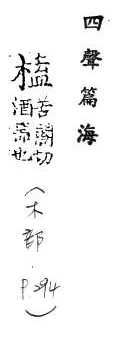 四聲篇海
榼
苦闔切
酒器也
(木部.P.294)